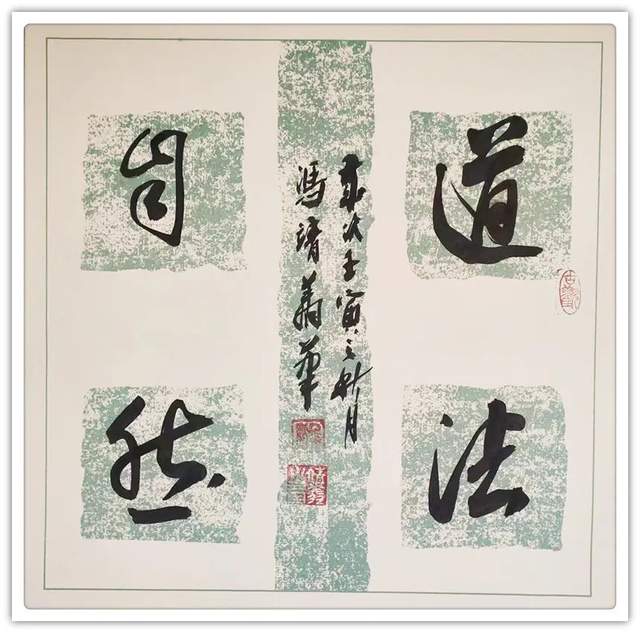 道
法
自
然
歲次壬寅之秋月
馮靖